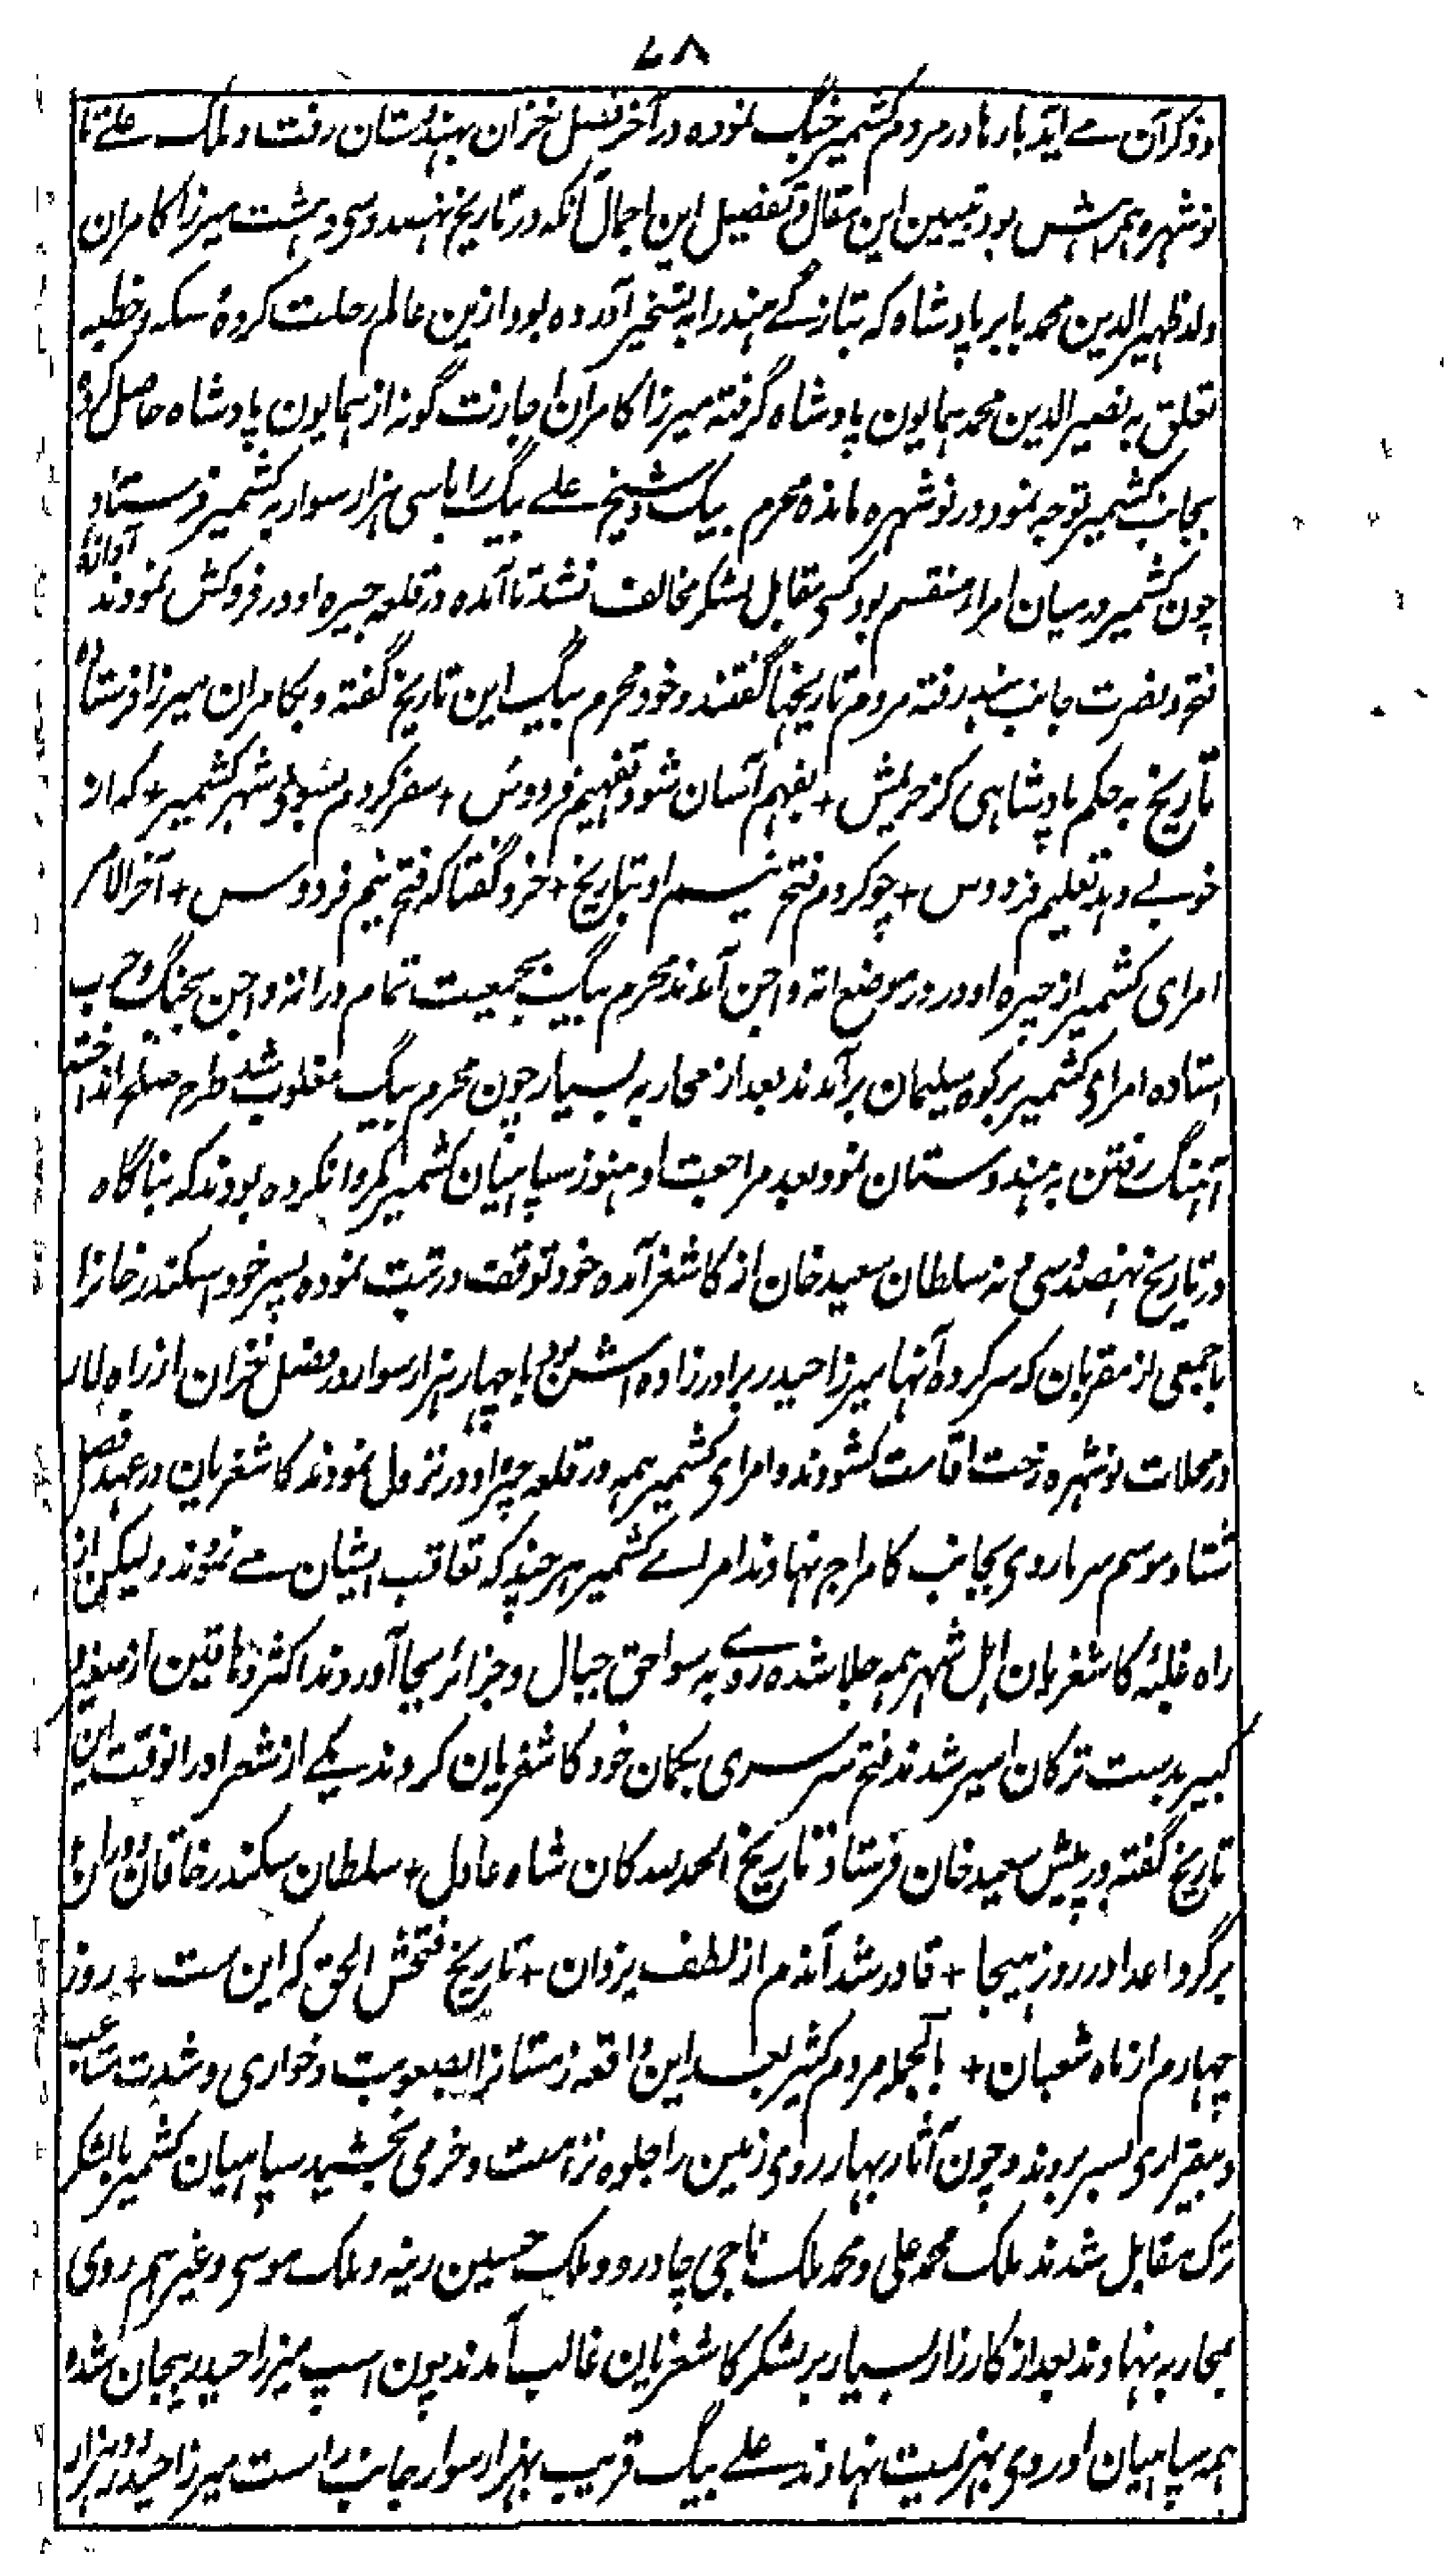 ۷۸
و ذکر آن می آید بارها در مردم کشمیر جنگ نموده در آخر فصل خزان بهندستان رفت و ملک علے تا
نوشهره همراهش بود تبیین این مقال و تفصیل این اجمال آنکه در تاریخ نهصد و سی و هشت میرزا کامران
ولد ظهیر الدین محمد بابر پادشاه که بتازگے هند را به تسخیر آورده بود ازین عالم رحلت کرده سکه و خطبه
تعلق به نصیر الدین محمد همایون پادشاه گرفته میرزا کامران اجازت گونه از همایون پادشاه حاصل کرده
بجانب کشمیر توجه نمود در نوشهره مانده محرم بیگ و شیخ علے بیگ را با سی هزار سوار به کشمیر فرستاد
چون کشمیر در میان امرا منقسم بود کسی مقابل لشکر مخالف نشد تا آمده در قلعه جیره اودر فروکش نمودند آوازهٔ
فتح و نصرت جانب هند رفته مردم تاریخها گفتند و خود محرم بیگ این تاریخ گفته و بکامران میرزا فرستاده
تاریخ به حکم پادشاهی کز حریمش + بفهم آسان شود تفهیم فردوس + سفر کردم بسوی شهر کشمیر + که از
خوبے دهد تعلیم فردوس + چو کردم فتح نیم او بتاریخ + خرد گفتا که فتح نیم فردوس + آخر الامر
امرای کشمیر از جیره اودر در موضع اته واجن آمدند محرم بیگ بجمعیت تمام در اته واجن بجنگ و حرب
استاده امرای کشمیر بر کوه سلیمان برآمدند بعد از محاربه بسیار چون محرم بیگ مغلوب شد طرح صلح انداخته
آهنگ رفتن به هندوستان نمود بعد مراجعت او هنوز سپاهیان کشمیر کمر وا نکرده بودند که بناگاه
در تاریخ نهصد و سی و نه سلطان سعید خان از کاشغر آمده خود توقف در تبت نموده پسر خود اسکندر خانرا
با جمعی از مقربان که سرکرده آنها میرزا حیدر برادرزاده اش بود با چهار هزار سوار در فصل خزان از راه لار
در محلات نوشهره رخت اقامت کشودند و امرای کشمیر همه در قلعه چیره اودر نزول نمودند کاشغریان در عهد فصل
شتا و موسم سرما روی بجانب کامراج نهادند امراے کشمیر هر چند که تعاقب ایشان مے نمودند ولیکن از
راه غلبهٔ کاشغریان اهل شهر همه جلا شده روے به سواحق جبال و جزائر بجا آوردند اکثر دهاقین از صغیر و
کبیر بدست ترکان اسیر شدند فتح سرسری بگمان خود کاشغریان کردند یکے از شعرا در آنوقت این
تاریخ گفته در پیش سعید خان فرستاد تاریخ الحمد لله کان شاه عادل + سلطان سکندر خاقان دوران
بر گرد اعدا در روز هیجا + قادر شد آندم از لطف یزدان + تاریخ فتحش الحق که این ست + روز
چهارم از ماه شعبان + بالجمله مردم کشمیر بعد این واقعه زمستانرا بصعوبت و خواری و شدت متاعب
و بیقراری بسر بردند و چون آثار بهار روی زمین را جلوه نزاهت و خرمی بخشید سپاهیان کشمیر با لشکر
ترک مقابل شدند ملک محمد علی و محمد ملک ناجی چادرو و ملک حسین رینه و ملک موسی و غیرهم روی
بمحاربه نهادند بعد از کارزار بسیار بر لشکر کاشغریان غالب آمدند چون اسپ میرزا حیدر بیجان شده
همه سپاهیان او روی بهزیمت نهادند علے بیگ قریب بهزار سوار جانب راست میرزا حیدر دو هزار